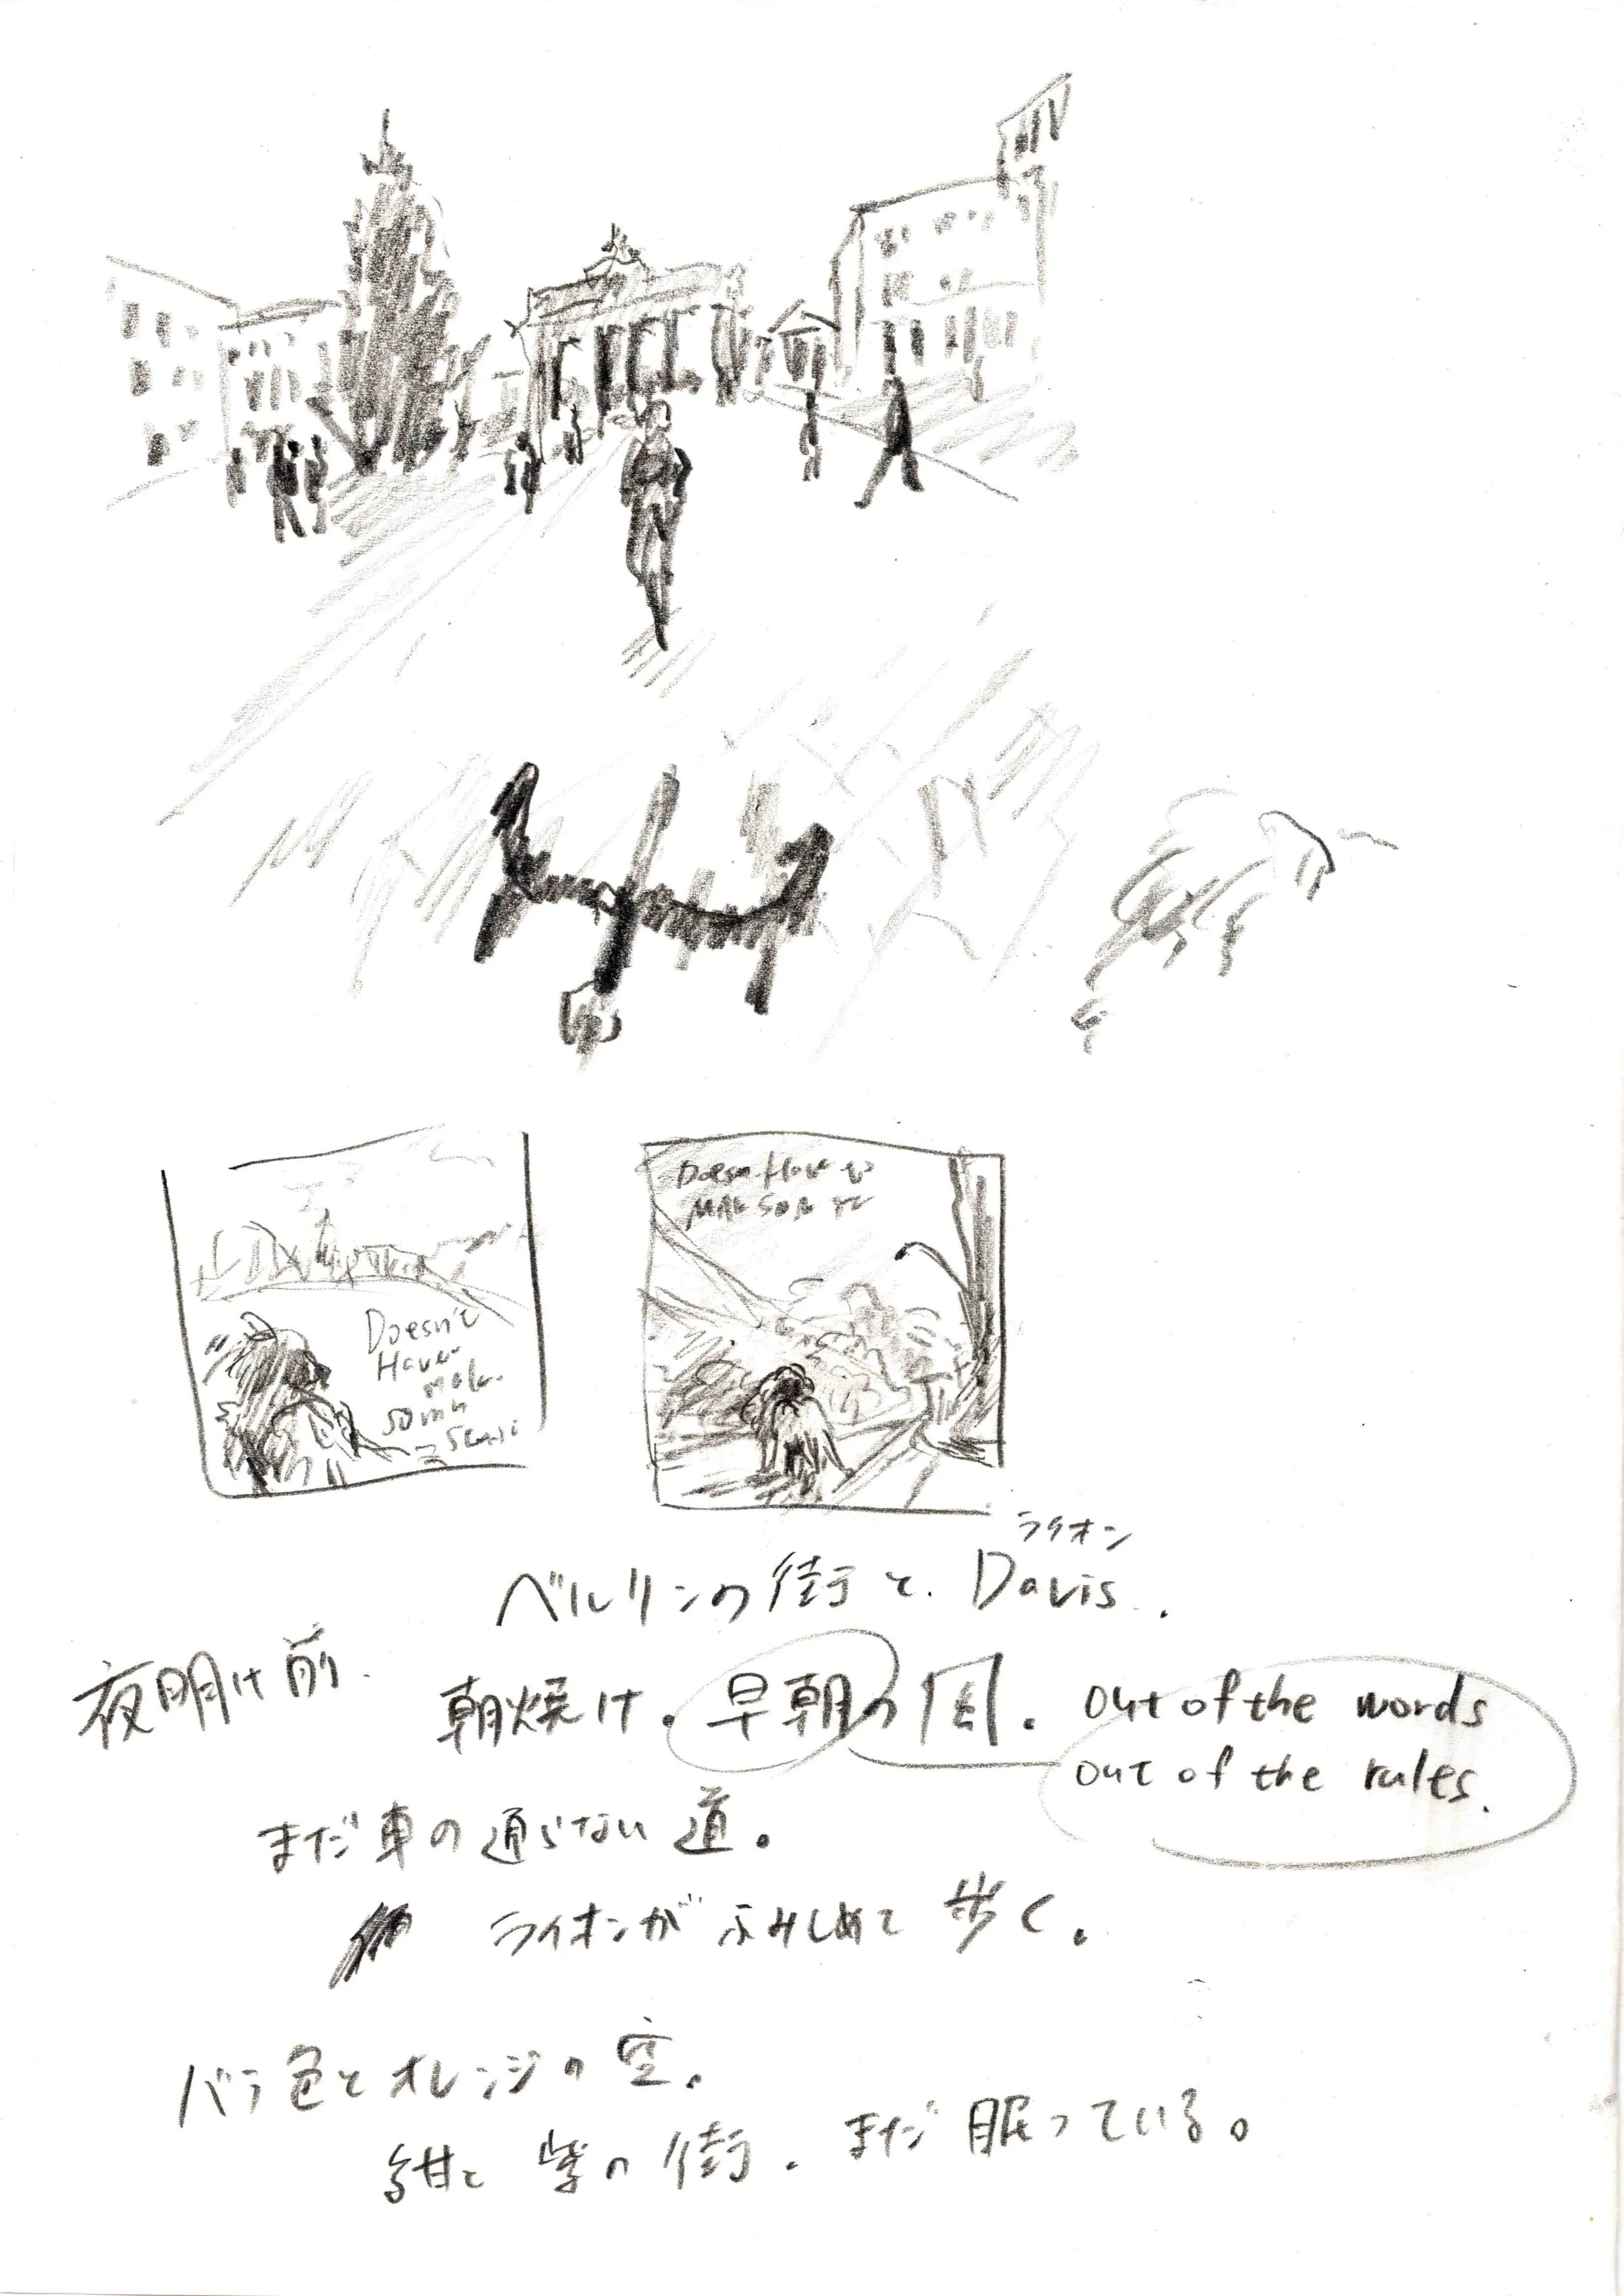 Doesn't
Have
Make
Doesn Have to
ライオン
ベルリンの街と. Davis.
夜明け前.
朝焼け. 早朝の風. out of the words
out of the rules.
まだ車の通らない道。
ライオンがふみしめて歩く.
バラ色とオレンジの空.
紺と紫の街. まだ眠っている。